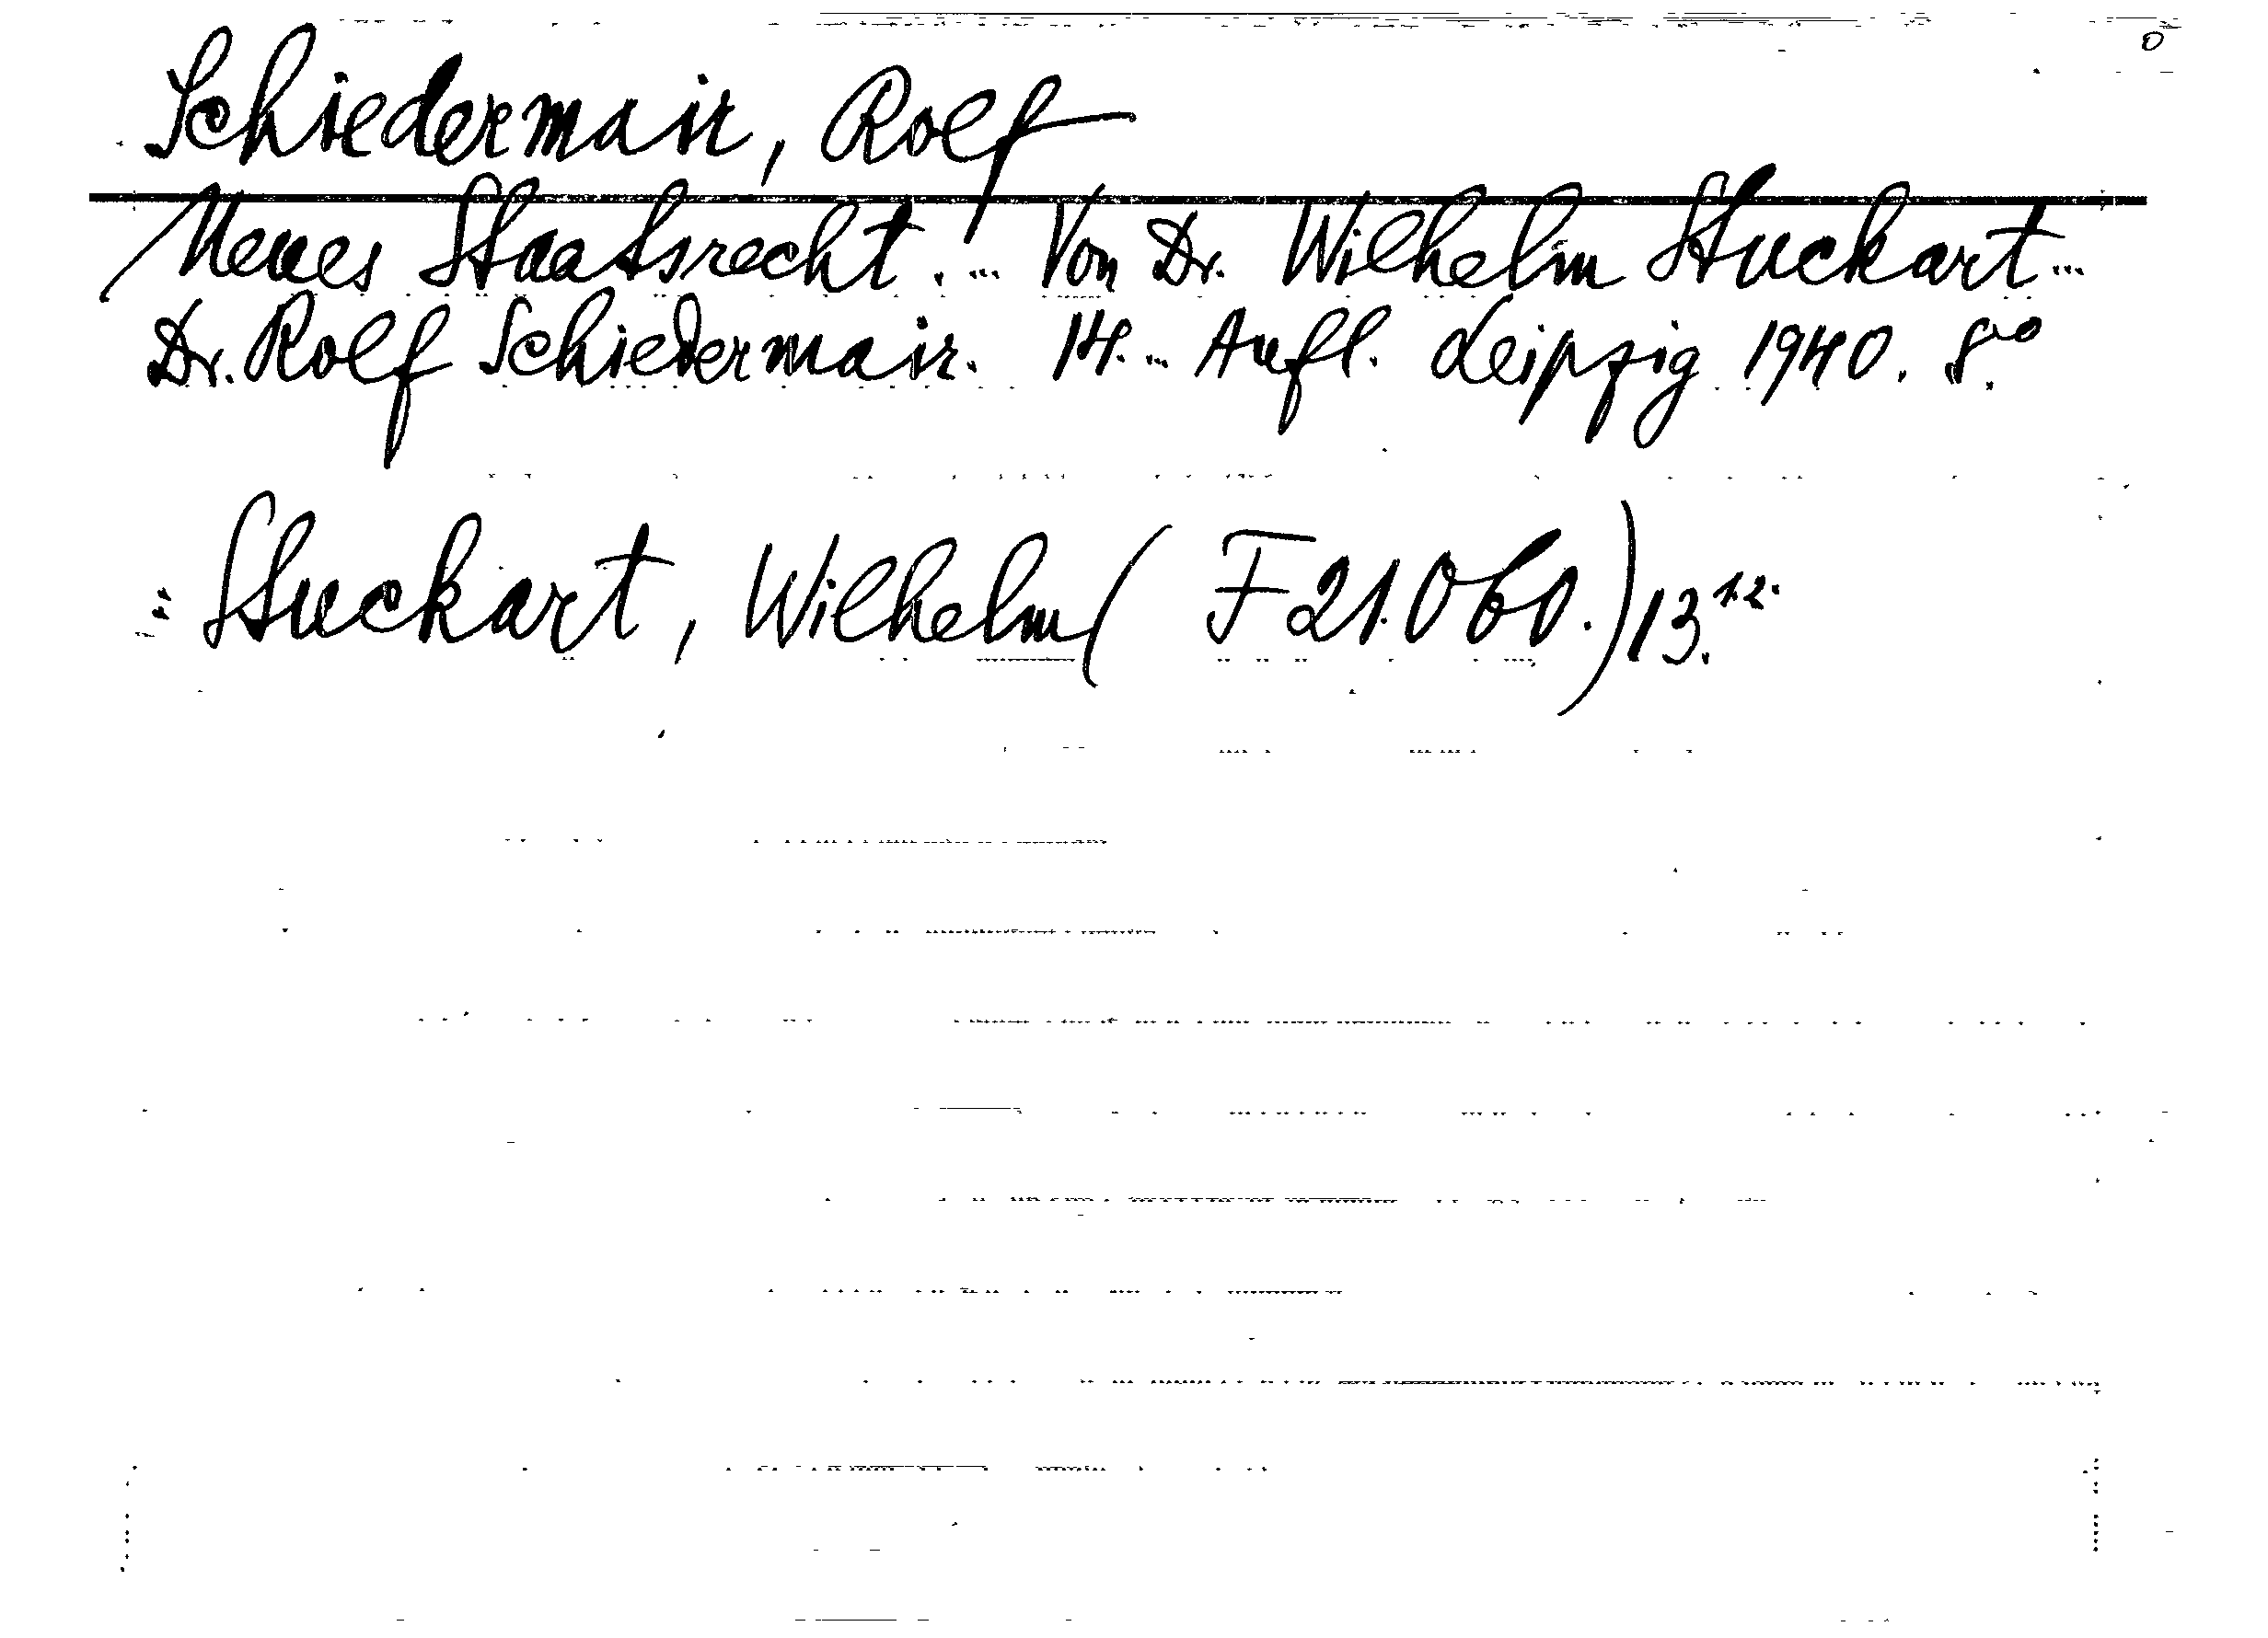 Schiedermair, Rolf
Neues Staatsrecht. ... Von Dr. Wilhelm Stuckart ...
Dr. Rolf Schiedermair. 14. ... Aufl. Leipzig 1940. 8°.
= Stuckart, Wilhelm ( F 21.060.) 13.